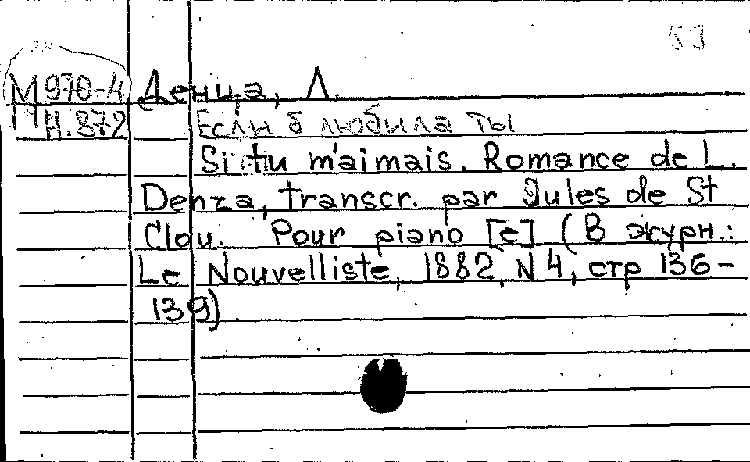 53
М 970-4 Денца, Л.
Н.872 Если б любила ты
Si tu m'aimais. Romance de L.
Denza, transcr. par Jules de St
Clou. Pour piano [e] (В журн.:
Le Nouvelliste, 1882, N 4, стр 136-
139)